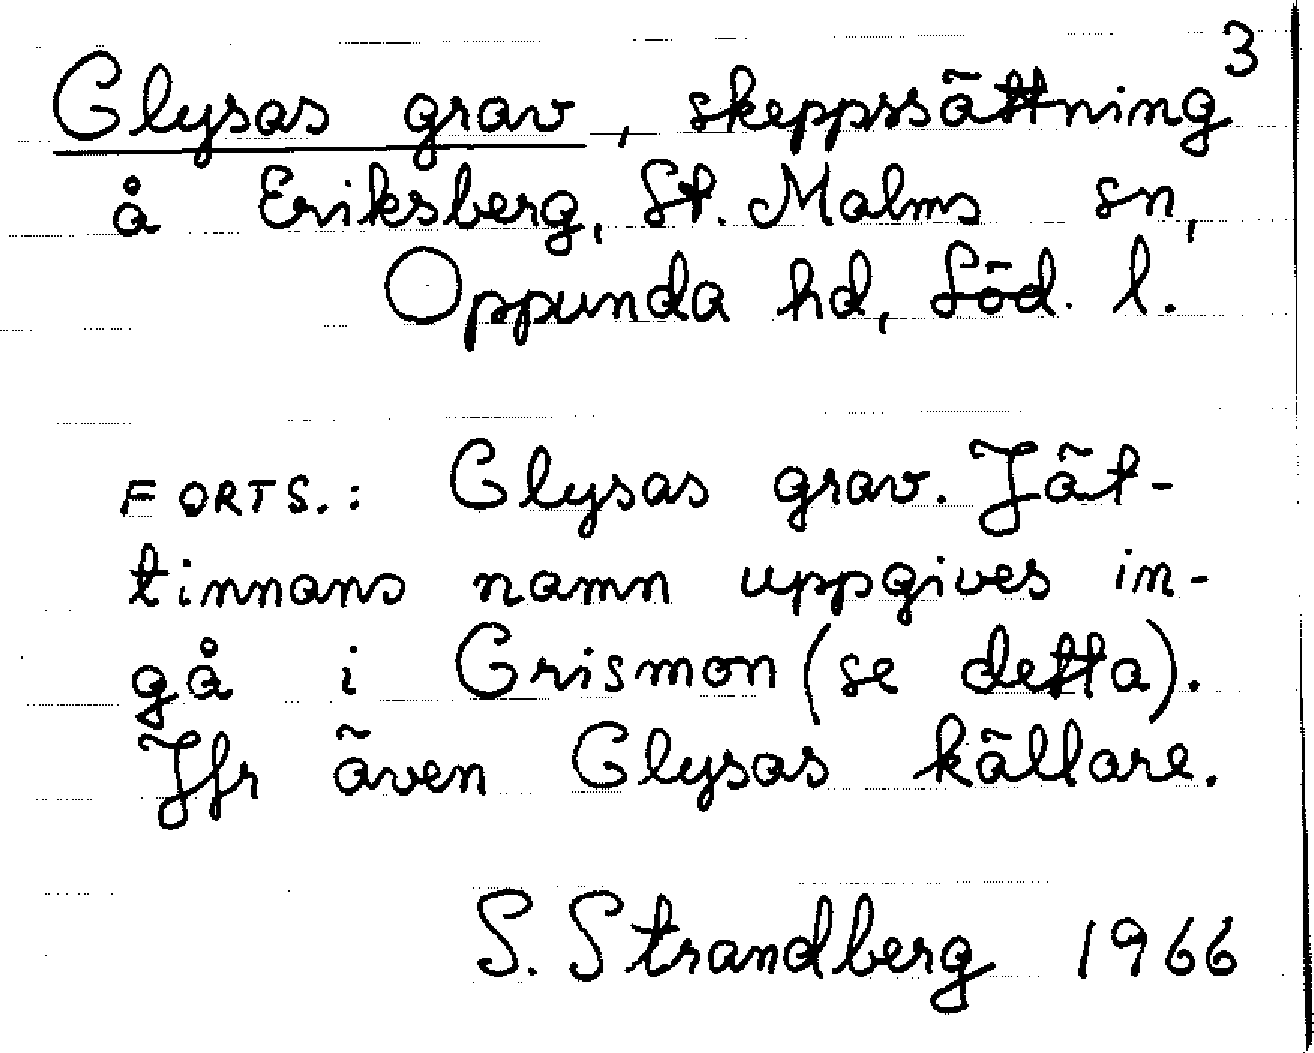 3
Glysas grav, skeppssättning
å Eriksberg, St. Malms sn,
Oppunda hd, Söd. l.
FORTS.: Glysas grav. Jät-
tinnans namn uppgives in-
gå i Grismon (se detta).
Jfr även Glysas källare.
S. Strandberg 1966